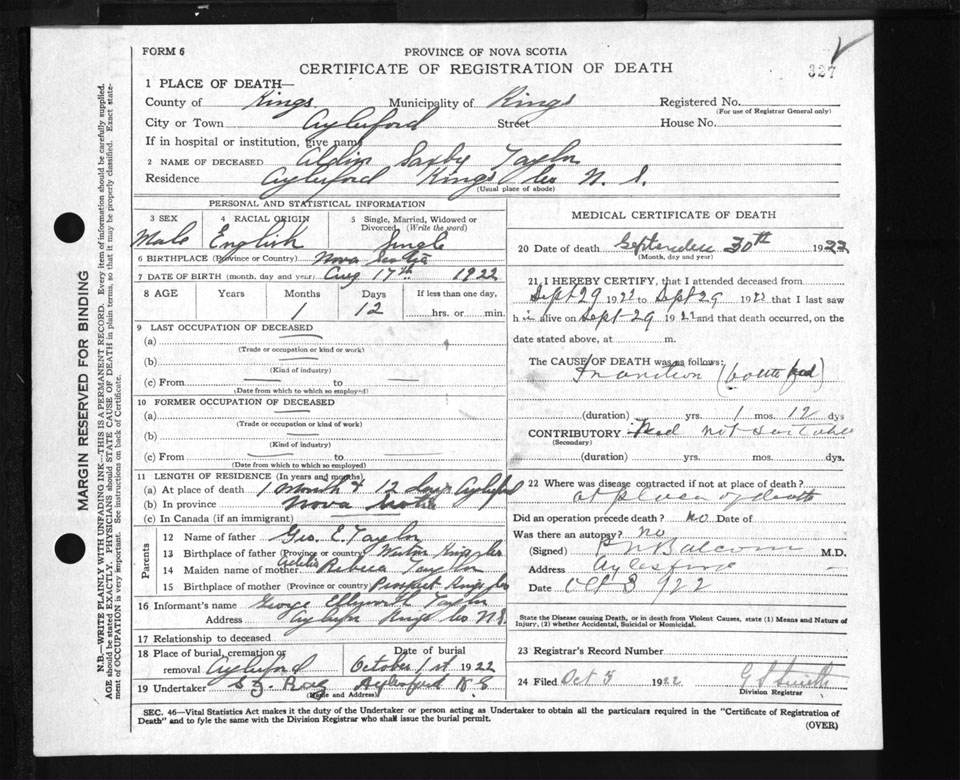 FORM 6
PROVINCE OF NOVA SCOTIA
CERTIFICATE OF REGISTRATION OF DEATH
327
1 PLACE OF DEATH—
County of Kings Municipality of Kings Registered No.
(For use of Registrar General only)
City or Town Aylesford Street House No.
If in hospital or institution, give name
2 NAME OF DECEASED Saxby Taylor
Residence Aylesford Kings Co N. S.
(Usual place of abode)
PERSONAL AND STATISTICAL INFORMATION
3 SEX 4 RACIAL ORIGIN 5 Single, Married, Widowed or Divorced (Write the word)
Male English Single
6 BIRTHPLACE (Province or Country) Nova Scotia
7 DATE OF BIRTH (month, day and year) Aug 17th 1922
8 AGE Years Months Days If less than one day,
1 12 hrs. or min.
9 LAST OCCUPATION OF DECEASED
(a)
(Trade or occupation or kind or work)
(b)
(Kind of industry)
(c) From to
(Date from which to which so employed)
10 FORMER OCCUPATION OF DECEASED
(a)
(Trade or occupation or kind of work)
(b)
(Kind of industry)
(c) From to
(Date from which to which so employed)
11 LENGTH OF RESIDENCE (In years and months)
(a) At place of death 1 Month & 12 days Aylesford
(b) In province Nova Scotia
(c) In Canada (if an immigrant)
Parents
12 Name of father Geo. E. Taylor
13 Birthplace of father (Province or country) Kings Co
14 Maiden name of mother Rebecca Taylor
15 Birthplace of mother (Province or country) Prospect Kings Co
16 Informant's name George Taylor
Address Aylesford Kings Co N.S.
17 Relationship to deceased
18 Place of burial, cremation or removal Aylesford Date of burial October 1st 1922
19 Undertaker Aylesford N.S.
(Name and Address)
MEDICAL CERTIFICATE OF DEATH
20 Date of death September 30th 1922
(Month, day and year)
21 I HEREBY CERTIFY, that I attended deceased from
Sept 29 1922 to Sept 29 1922 that I last saw
h im alive on Sept 29 1922 and that death occurred, on the
date stated above, at m.
The CAUSE OF DEATH was as follows:
Inanition (bottle fed)
(duration) yrs. 1 mos. 12 dys
CONTRIBUTORY Food not suitable
(Secondary)
(duration) yrs. mos. dys.
22 Where was disease contracted if not at place of death?
at place of death
Did an operation precede death? no Date of
Was there an autopsy? no
(Signed) P N Balcom M.D.
Address Aylesford
Date Oct 3 1922
State the Disease causing Death, or in death from Violent Causes, state (1) Means and Nature of
Injury, (2) whether Accidental, Suicidal or Homicidal.
23 Registrar's Record Number
24 Filed Oct 5 1922 G S Smith
Division Registrar
SEC. 46—Vital Statistics Act makes it the duty of the Undertaker or person acting as Undertaker to obtain all the particulars required in the "Certificate of Registration of
Death" and to fyle the same with the Division Registrar who shall issue the burial permit.
(OVER)
MARGIN RESERVED FOR BINDING
N.B.—WRITE PLAINLY WITH UNFADING INK—THIS IS A PERMANENT RECORD. Every item of information should be carefully supplied.
AGE should be stated EXACTLY. PHYSICIANS should STATE CAUSE OF DEATH in plain terms, so that it may be properly classified. Exact state-
ment of OCCUPATION is very important. See instructions on back of Certificate.